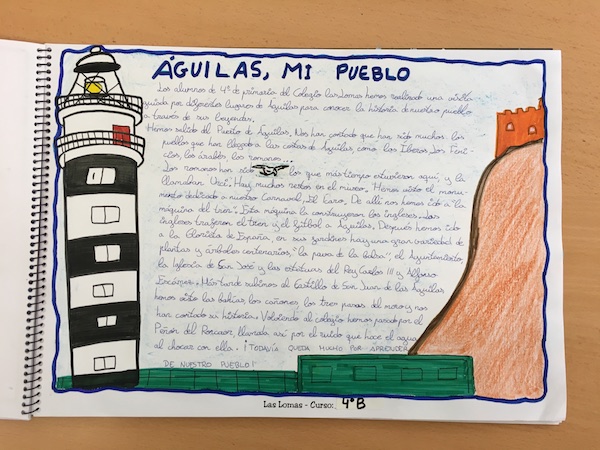 ÁGUILAS, MI PUEBLO
Los alumnos de 4º de primaria del Colegio Las Lomas hemos realizado una visita
guiada por diferentes lugares de Águilas para conocer la historia de nuestro pueblo
a través de sus leyendas.
Hemos salido del Puerto de Águilas. Nos han contado que han sido muchos los
pueblos que han llegado a las costas de Águilas como los Iberos, los Feni-
cios, los árabes, los romanos...
Los romanos han sido los que más tiempo estuvieron aquí, y la
llamaban Urci. Hay muchos restos en el museo. Hemos visto el monu-
mento dedicado a nuestro Carnaval, El Icaro. De allí nos hemos ido a "la
máquina del tren". Esta máquina la construyeron los ingleses. Los
ingleses trajeron el tren y el fútbol a Águilas. Después hemos ido
a la Glorieta de España, en sus jardines hay una gran variedad de
plantas y árboles centenarios, "la pava de la balsa", el Ayuntamiento,
la Iglesia de San José y las estatuas del Rey Carlos III y Alfonso
Escámez. Más tarde subimos al Castillo de San Juan de las Águilas
hemos visto las bahías, los cañones, los tres pasos del moro y nos
han contado su historia. Volviendo al colegio hemos pasado por el
Peñón del Roncaor, llamado así por el ruido que hace el agua
al chocar con ella. ¡TODAVÍA QUEDA MUCHO POR APRENDER
DE NUESTRO PUEBLO!
Las Lomas - Curso: 4º B